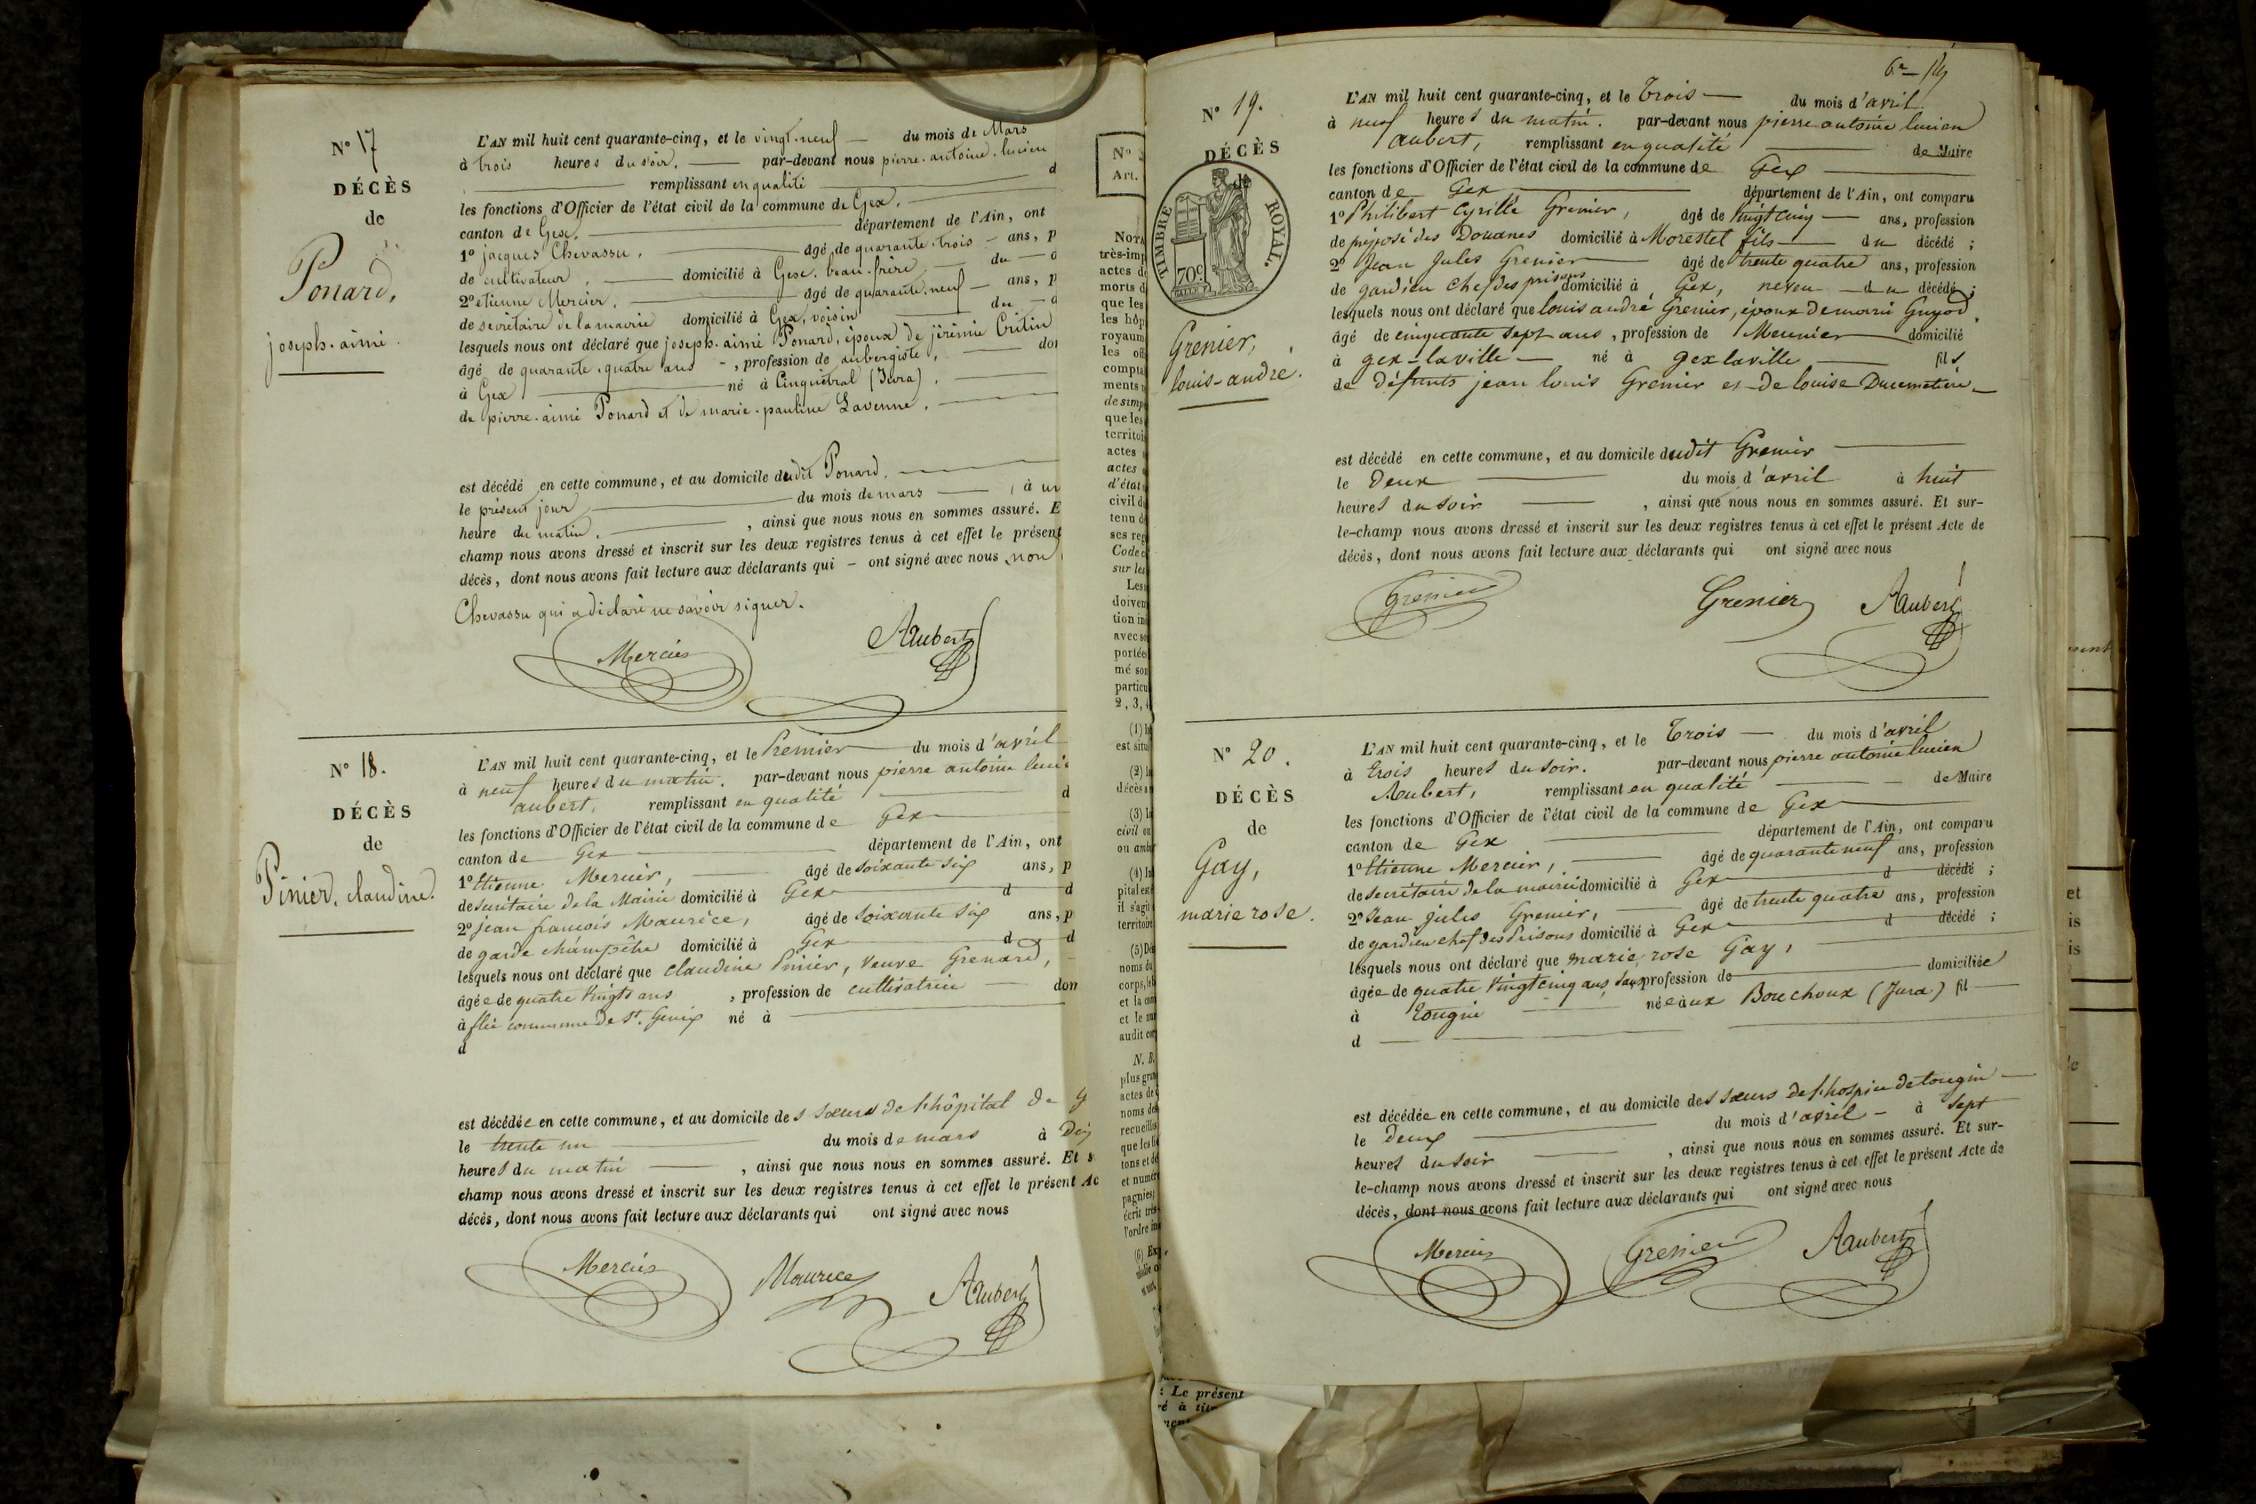 N° 17
DÉCÈS
de
Ponard,
joseph. aimé.
L'AN mil huit cent quarante-cinq, et le vingt-neuf — du mois de Mars
à trois heures du soir. — par-devant nous pierre. antoine. lucien
— remplissant en qualité — d
les fonctions d'Officier de l'état civil de la commune de Gex. —
canton de Gex. — département de l'Ain, ont
1° jacques Chevassu, — âgé de quarante. trois — ans, p
de cultivateur, — domicilié à Gex. beau. frère — du — d
2° etienne Mercier. — âgé de quarante. neuf — ans, p
de secrétaire de la mairie domicilié à Gex, voisin — du — d
lesquels nous ont déclaré que joseph. aimé Ponard, époux de jérémie Critin
âgé de quarante. quatre ans - , profession de aubergiste, — do
à Gex — né à Cinquétral (Jura), —
de pierre. aimé Ponard et de marie. pauline Lavenne, —
est décédé en cette commune, et au domicile dudit Ponard, —
le présent jour — du mois de mars — , à un
heure du matin. — , ainsi que nous nous en sommes assuré. E
champ nous avons dressé et inscrit sur les deux registres tenus à cet effet le présent
décès, dont nous avons fait lecture aux déclarants qui — ont signé avec nous, non
Chevassu qui a déclaré ne savoir signer.
Mercier
AAubert
N° 18.
DÉCÈS
de
Pinier, claudine.
L'AN mil huit cent quarante-cinq, et le Premier — du mois d'avril
à neuf heures du matin. par-devant nous pierre antoine luci
aubert, remplissant en qualité — d
les fonctions d'Officier de l'état civil de la commune de Gex —
canton de Gex — département de l'Ain, ont
1° Etienne Mercier, — âgé de soixante six ans, p
de secrétaire de la Mairie domicilié à Gex — d d
2° jean françois Maurice, âgé de soixante six ans, p
de garde champêtre domicilié à Gex — d d
lesquels nous ont déclaré que claudine Pinier, veuve Grenard,
âgée de quatre vingts ans , profession de cultivatrice — dom
à flie commune de St. Genix né à —
d
est décédée en cette commune, et au domicile des sœurs de l'hôpital de G
le trente un — du mois de mars à Dix
heures du matin — , ainsi que nous nous en sommes assuré. Et s
champ nous avons dressé et inscrit sur les deux registres tenus à cet effet le présent Ac
décès, dont nous avons fait lecture aux déclarants qui ont signé avec nous
Mercier
Maurice
AAubert
N°
Art.
NOTA
très-imp
actes d
morts d
que les
les hôp
royaum
les off
compta
ments
de simp
que les
territoi
actes
actes
d'état
civil d
tenu d
ses reg
Code c
sur les
Les
doiven
tion in
avec so
portées
mé son
particu
2, 3,
(1) In
est situ
(2) In
décès an
(3) In
civil ou
ou amb
(4) In
pital est
il s'agit
territoire
(5) Dés
noms du
corps, le
et la com
et le nu
audit cor
N. B.
plus gran
actes de
noms de
recueillis
que les
tons et dé
et numér
pagnies;
écrit très
l'ordre in
(6) Ex
: Le présent
ré à titr
6e 14
N° 19.
DÉCÈS
TIMBRE ROYAL.
70c
Grenier,
louis-andré.
L'AN mil huit cent quarante-cinq, et le Trois — du mois d'avril
à neuf heures du matin. par-devant nous pierre antoine lucien
aubert, remplissant en qualité — de Maire
les fonctions d'Officier de l'état civil de la commune de Gex —
canton de Gex — département de l'Ain, ont comparu
1° Philibert Cyrille Grenier, âgé de vingt cinq — ans, profession
de préposé des Douanes domicilié à Morestel fils — du décédé ;
2° Jean Jules Grenier — âgé de trente quatre ans, profession
de gardien chef des prisons domicilié à Gex, neveu — du décédé ;
lesquels nous ont déclaré que louis andré Grenier, époux de marie Guyod,
âgé de cinquante sept ans , profession de Meunier — domicilié
à gex-la ville — né à gex la ville — fils
de défunts jean louis Grenier et de louise Ducimetière —
est décédé en cette commune, et au domicile dudit Grenier —
le Deux — du mois d'avril à huit
heures du soir — , ainsi que nous nous en sommes assuré. Et sur-
le-champ nous avons dressé et inscrit sur les deux registres tenus à cet effet le présent Acte de
décès, dont nous avons fait lecture aux déclarants qui ont signé avec nous
Grenier
Grenier
AAubert
N° 20.
DÉCÈS
de
Gay,
marie rose.
L'AN mil huit cent quarante-cinq, et le Trois — du mois d'avril
à trois heures du soir. par-devant nous pierre antoine lucien
Aubert, remplissant en qualité — de Maire
les fonctions d'Officier de l'état civil de la commune de Gex —
canton de Gex — département de l'Ain, ont comparu
1° Etienne Mercier, — âgé de quarante neuf ans, profession
de secrétaire de la mairie domicilié à Gex — d décédé ;
2° Jean jules Grenier, — âgé de trente quatre ans, profession
de gardien chef des Prisons domicilié à Gex — d décédé ;
lesquels nous ont déclaré que marie rose Gay,
âgée de quatre vingt cinq ans sans profession de — domiciliée
à Tougin — née aux Bouchoux (Jura) fil —
d —
est décédée en cette commune, et au domicile des sœurs de l'hospice de tougin —
le Deux — du mois d'avril — à sept
heures du soir — , ainsi que nous nous en sommes assuré. Et sur-
le-champ nous avons dressé et inscrit sur les deux registres tenus à cet effet le présent Acte de
décès, dont nous avons fait lecture aux déclarants qui ont signé avec nous
Mercier
Grenier
AAubert
et
is
is